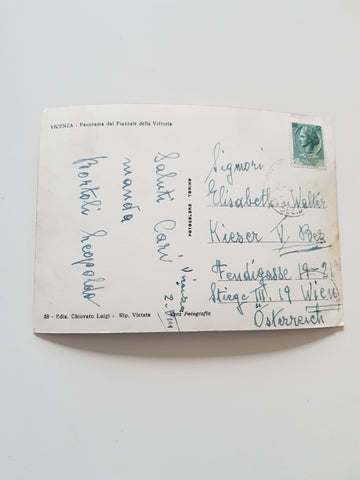 VICENZA - Panorama dal Piazzale della Vittoria
Saluti Cari
manda
Bortoli Leopoldo
Vicenza
FOTOCELERE TORINO
Signori
Elisabeth u. Walter
Kieser V. Bez
19-21
Stiege III. 19 Wien
Österreich
58 - Ediz. Chiovato Luigi - Rip. Vietata
Vera Fotografia